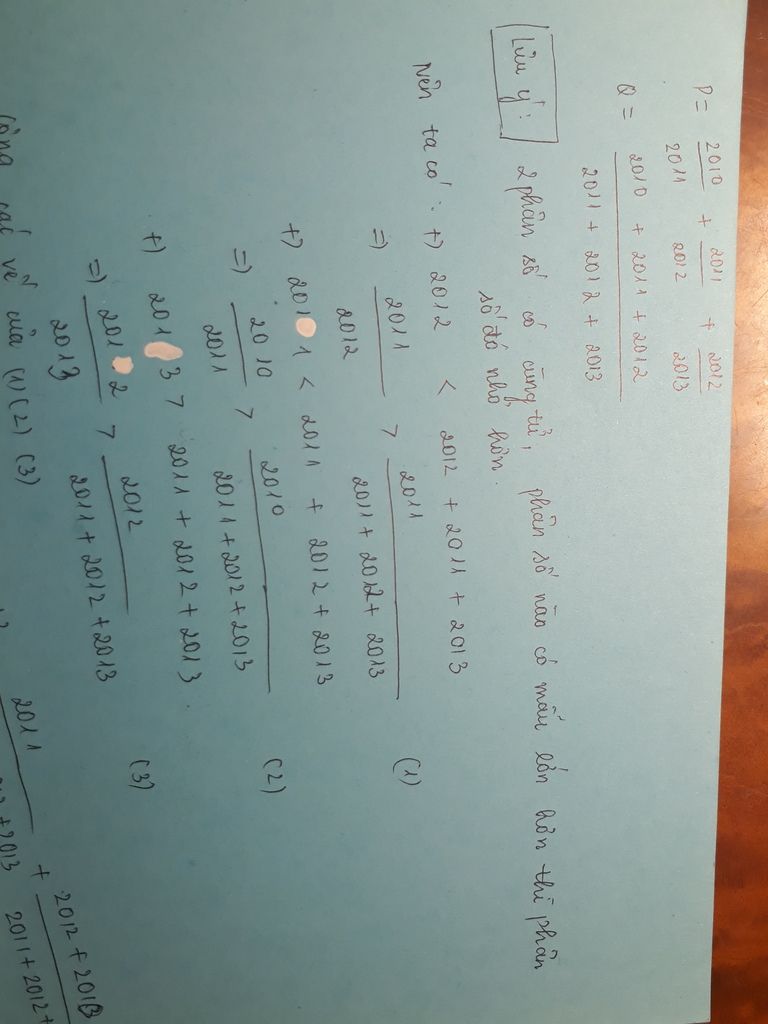 P = 2010/2011 + 2011/2012 + 2012/2013
Q = (2010 + 2011 + 2012)/(2011 + 2012 + 2013)
Lưu ý: 2 phân số có cùng tử, phân số nào có mẫu lớn hơn thì phân
số đó nhỏ hơn.
Nên ta có: +) 2012 < 2012 + 2011 + 2013
=) 2011/2012 > 2011/(2011 + 2012 + 2013) (1)
+) 2011 < 2011 + 2012 + 2013
=) 2010/2011 > 2010/(2011 + 2012 + 2013) (2)
+) 2013 > 2011 + 2012 + 2013
=) 2012/2013 > 2012/(2011 + 2012 + 2013) (3)
Cộng các vế của (1) (2) (3)
2011
+ 2013 + 2012 + 2013
2011 + 2012 +